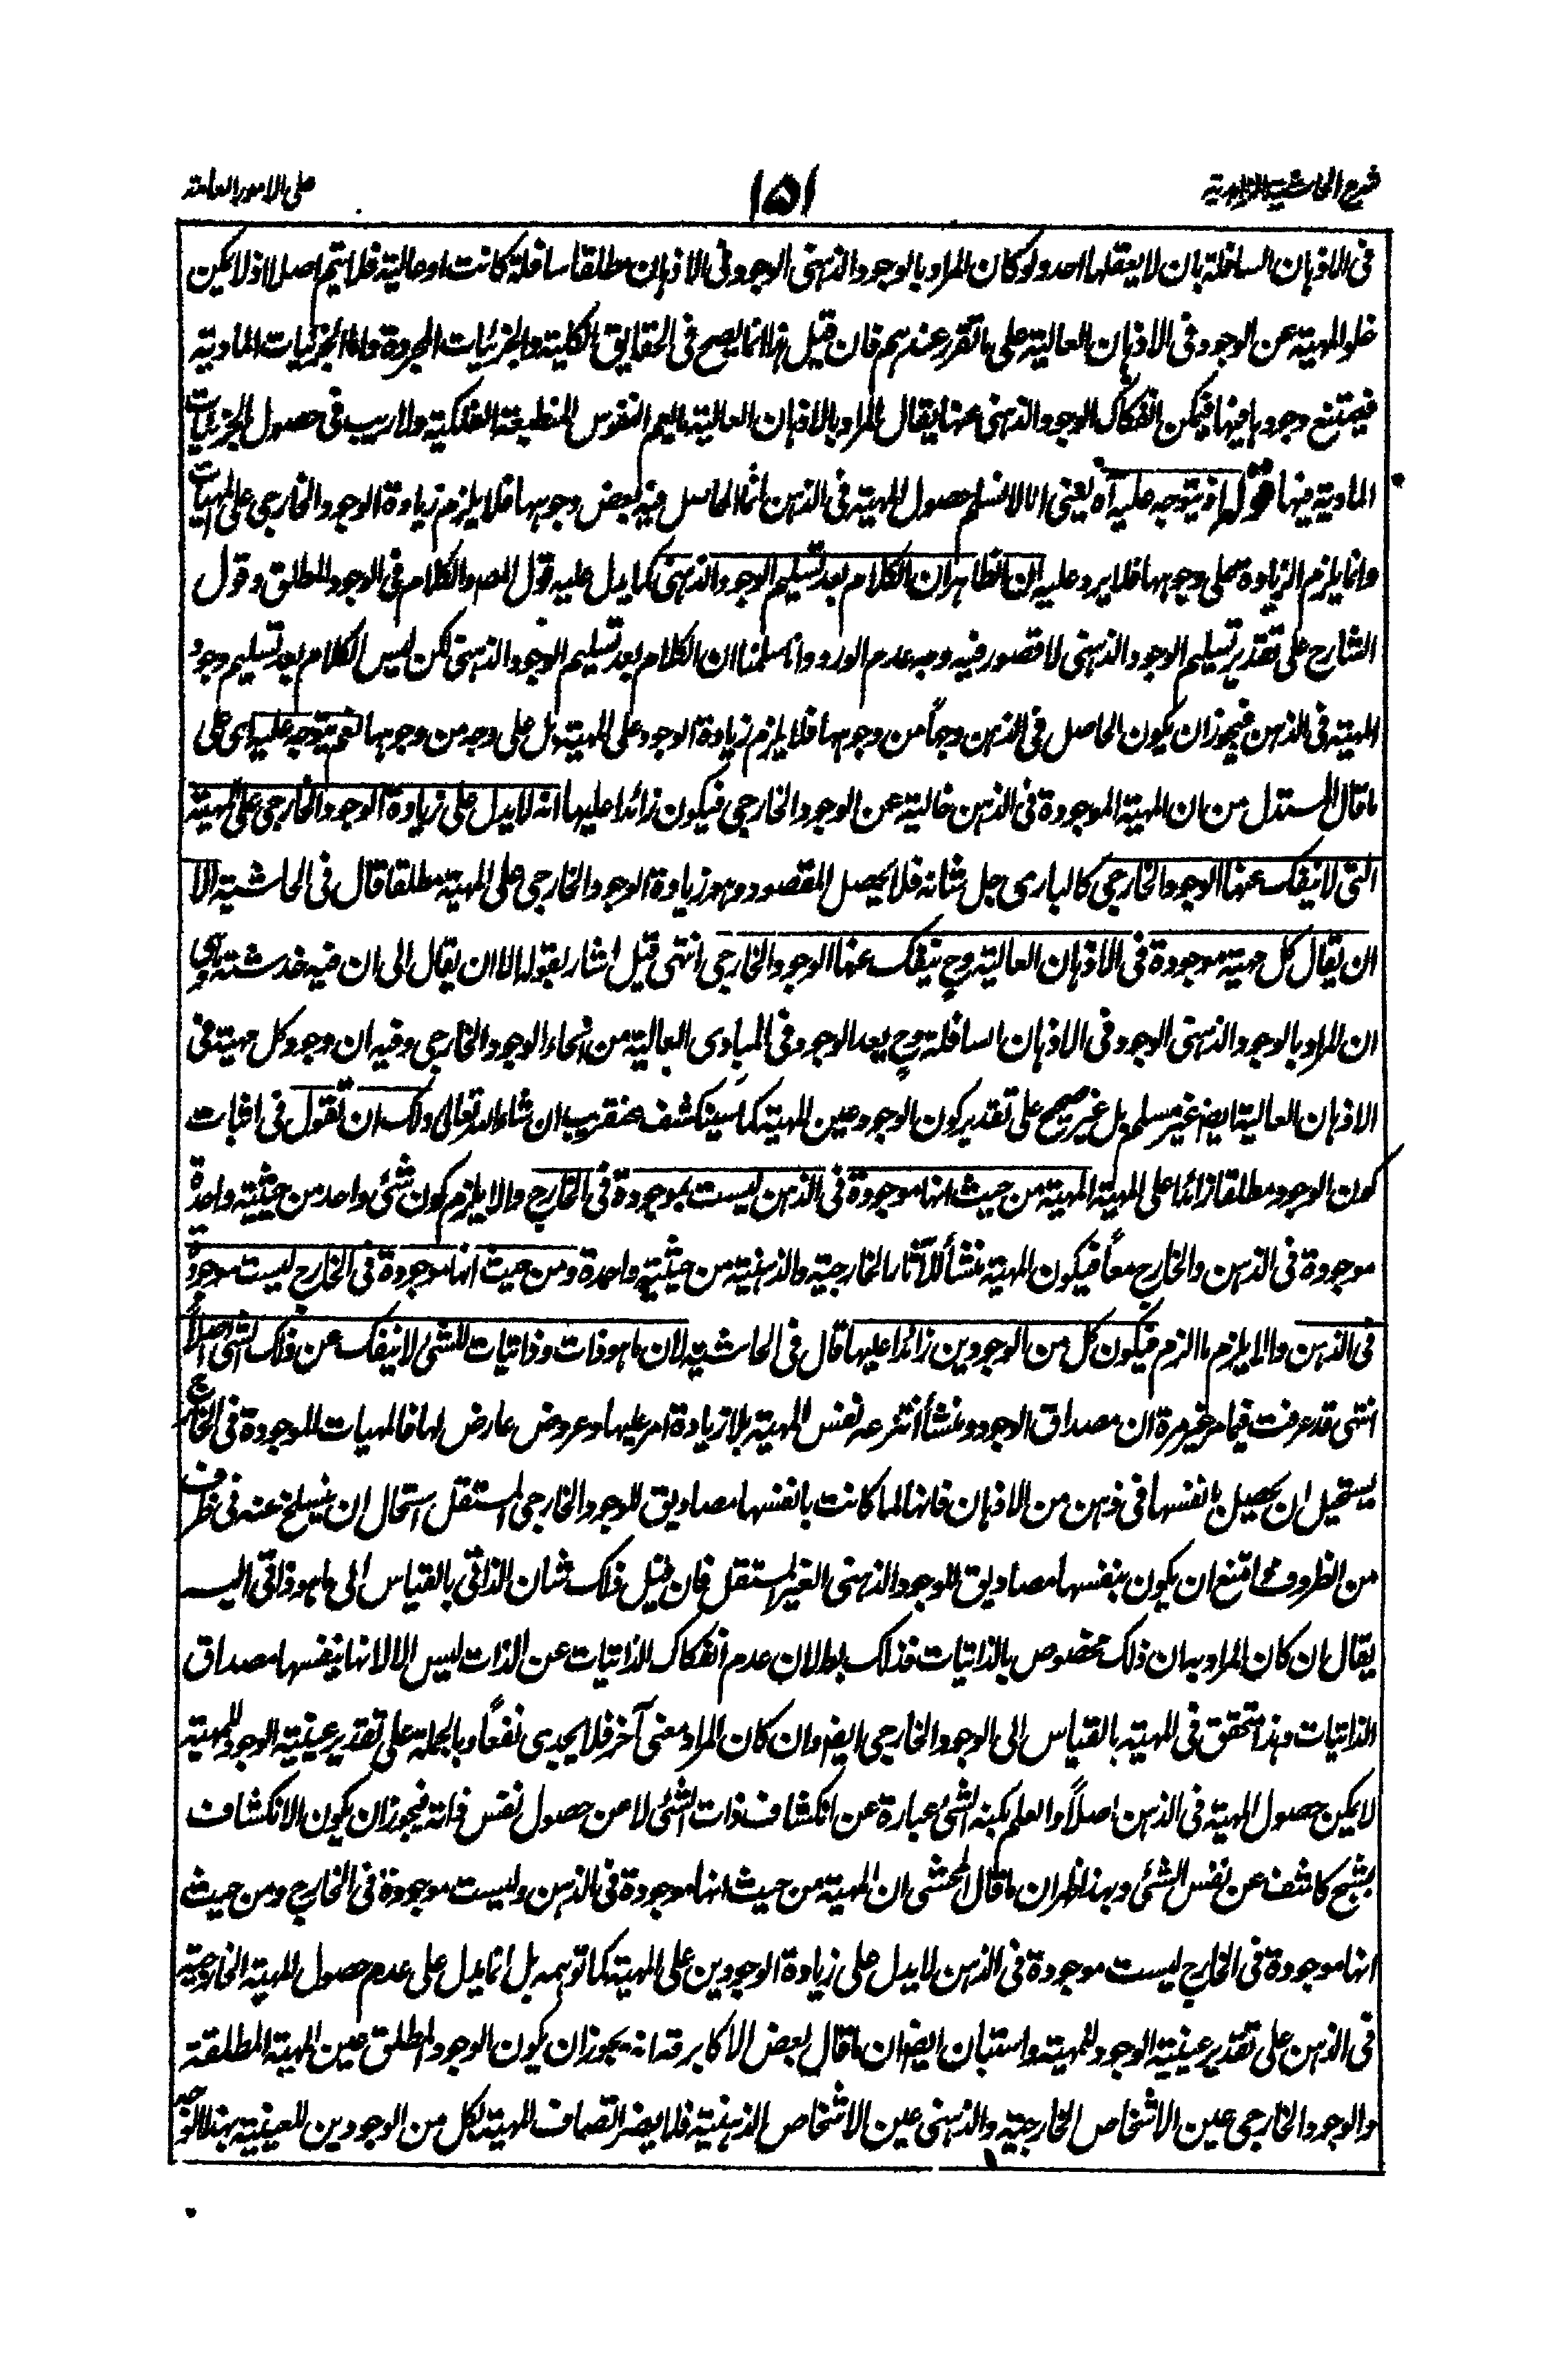 شرح الحاشية الزاهدية
١٥١
على الامور العامة
فى الاذهان السافلة بان لا يعقلها احد ولو كان المراد بالوجود الذهنى الوجود فى الاذهان مطلقا سافلة كانت او عالية فلا يتم اصلا اذ لا يمكن
خلو المهية عن الوجود فى الاذهان العالية على ما تقرر عندهم فان قيل هذا انما يصح فى الحقايق الكلية والجزئيات المجردة واما الجزئيات المادية
فيمتنع وجودها فيها فيمكن انفكاك الوجود الذهنى عنها يقال المراد بالاذهان العالية ما يعم النفوس المنطبعة الفلكية ولا ريب فى حصول الجزئيات
المادية فيها قوله اذ يتوجه عليه آه يعنى انا لا نسلم حصول المهية فى الذهن انما الحاصل فيه بعض وجوهها فلا يلزم زيادة الوجود الخارجى على المهيات
وانما يلزم الزيادة على وجوهها فلا يرد عليه ان الظاهر ان الكلام بعد تسليم الوجود الذهنى كما يدل عليه قول المص والكلام فى الوجود المطلق وقول
الشارح على تقدير تسليم الوجود الذهنى لا قصور فيه وجه عدم الورود انا سلمنا ان الكلام بعد تسليم الوجود الذهنى لكن ليس الكلام بعد تسليم وجود
المهية فى الذهن فيجوز ان يكون الحاصل فى الذهن وجهاً من وجوهها فلا يلزم زيادة الوجود على المهية بل على وجه من وجوهها نعم يتوجه عليه اى على
ما قال المستدل من ان المهية الموجودة فى الذهن خالية عن الوجود الخارجى فيكون زائدا عليها انه لا يدل على زيادة الوجود الخارجى على المهية
التى لا ينفك عنها الوجود الخارجى كالبارى جل شانه فلا يحصل المقصود وهو زيادة الوجود الخارجى على المهية مطلقا قال فى الحاشية الا
ان يقال كل مهية موجودة فى الاذهان العالية وح ينفك عنها الوجود الخارجى انتهى قيل اشار بقوله الا ان يقال الى ان فيه خدشة وهى
ان المراد بالوجود الذهنى الوجود فى الاذهان السافلة وح يعد الوجود فى المبادى العالية من انحاء الوجود الخارجى وفيه ان وجود كل مهية فى
الاذهان العالية ايضا غير مسلم بل غير صحيح على تقدير كون الوجود عين المهية كما سينكشف عنقريب ان شاء الله تعالى ولك ان تقول فى اثبات
كون الوجود مطلقا زائدا على المهية المهية من حيث انها موجودة فى الذهن ليست بموجودة فى الخارج والا يلزم كون شئ واحد من حيثية واحدة
موجودة فى الذهن والخارج معاً فيكون المهية منشأ للآثار الخارجية والذهنية من حيثية واحدة ومن حيث انها موجودة فى الخارج ليست موجودة
فى الذهن والا يلزم ما الزم فيكون كل من الوجودين زائدا عليها قال فى الحاشية لان ما هو ذات وذاتيات للشئ لا ينفك عن ذلك الشئ اصلاً
انتهى قد عرفت فيما مر غير مرة ان مصداق الوجود ومنشأ انتزاعه نفس المهية بلا زيادة امر عليها وعروض عارض لها فالمهيات الموجودة فى الخارج
يستحيل ان يحصل بانفسها فى ذهن من الاذهان فانها لما كانت بانفسها مصاديق للوجود الخارجى المستقل استحال ان ينسلخ عنه فى ظرف
من الظروف وامتنع ان يكون بنفسها مصاديق للوجود الذهنى الغير المستقل فان قيل ذلك شان الذاتى بالقياس الى ما هو ذاتى اليه
يقال ان كان المراد به ان ذلك مخصوص بالذاتيات فذلك بط لان عدم انفكاك الذاتيات عن الذات ليس الا لانها بنفسها مصداق
الذاتيات وهذا متحقق فى المهية بالقياس الى الوجود الخارجى ايضا وان كان المراد معنى آخر فلا يجدى نفعاً وبالجملة على تقدير عينية الوجود للمهية
لا يمكن حصول المهية فى الذهن اصلاً والعلم بكنه الشئ عبارة عن انكشاف ذات الشئ لا عن حصول نفس ذاته فيجوز ان يكون الانكشاف
بشبح كاشف عن نفس الشئ وبهذا ظهر ان ما قال المحشى ان المهية من حيث انها موجودة فى الذهن وليست موجودة فى الخارج ومن حيث
انها موجودة فى الخارج ليست موجودة فى الذهن لا يدل على زيادة الوجودين على المهية كما توهمه بل انما يدل على عدم حصول المهية الخارجية
فى الذهن على تقدير عينية الوجود للمهية واستبان ايضا ان ما قال بعض الاكابر قد انه يجوز ان يكون الوجود المطلق عين المهية المطلقة
والوجود الخارجى عين الاشخاص الخارجية والذهنى عين الاشخاص الذهنية فلا يضر اتصاف المهية بكل من الوجودين للعينية بهذا الوجه